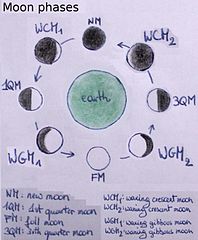 Moon phases
NM
WCM1
WCM2
1QM
earth
3QM
WGM1
WGM2
FM
NM: new moon
1QM: 1st quarter moon
FM: full moon
3QM: quarter moon
WCM1: waxing crescent moon
WCM2: waning crescent moon
WGM1: waxing gibbous moon
WGM2: waning gibbous moon